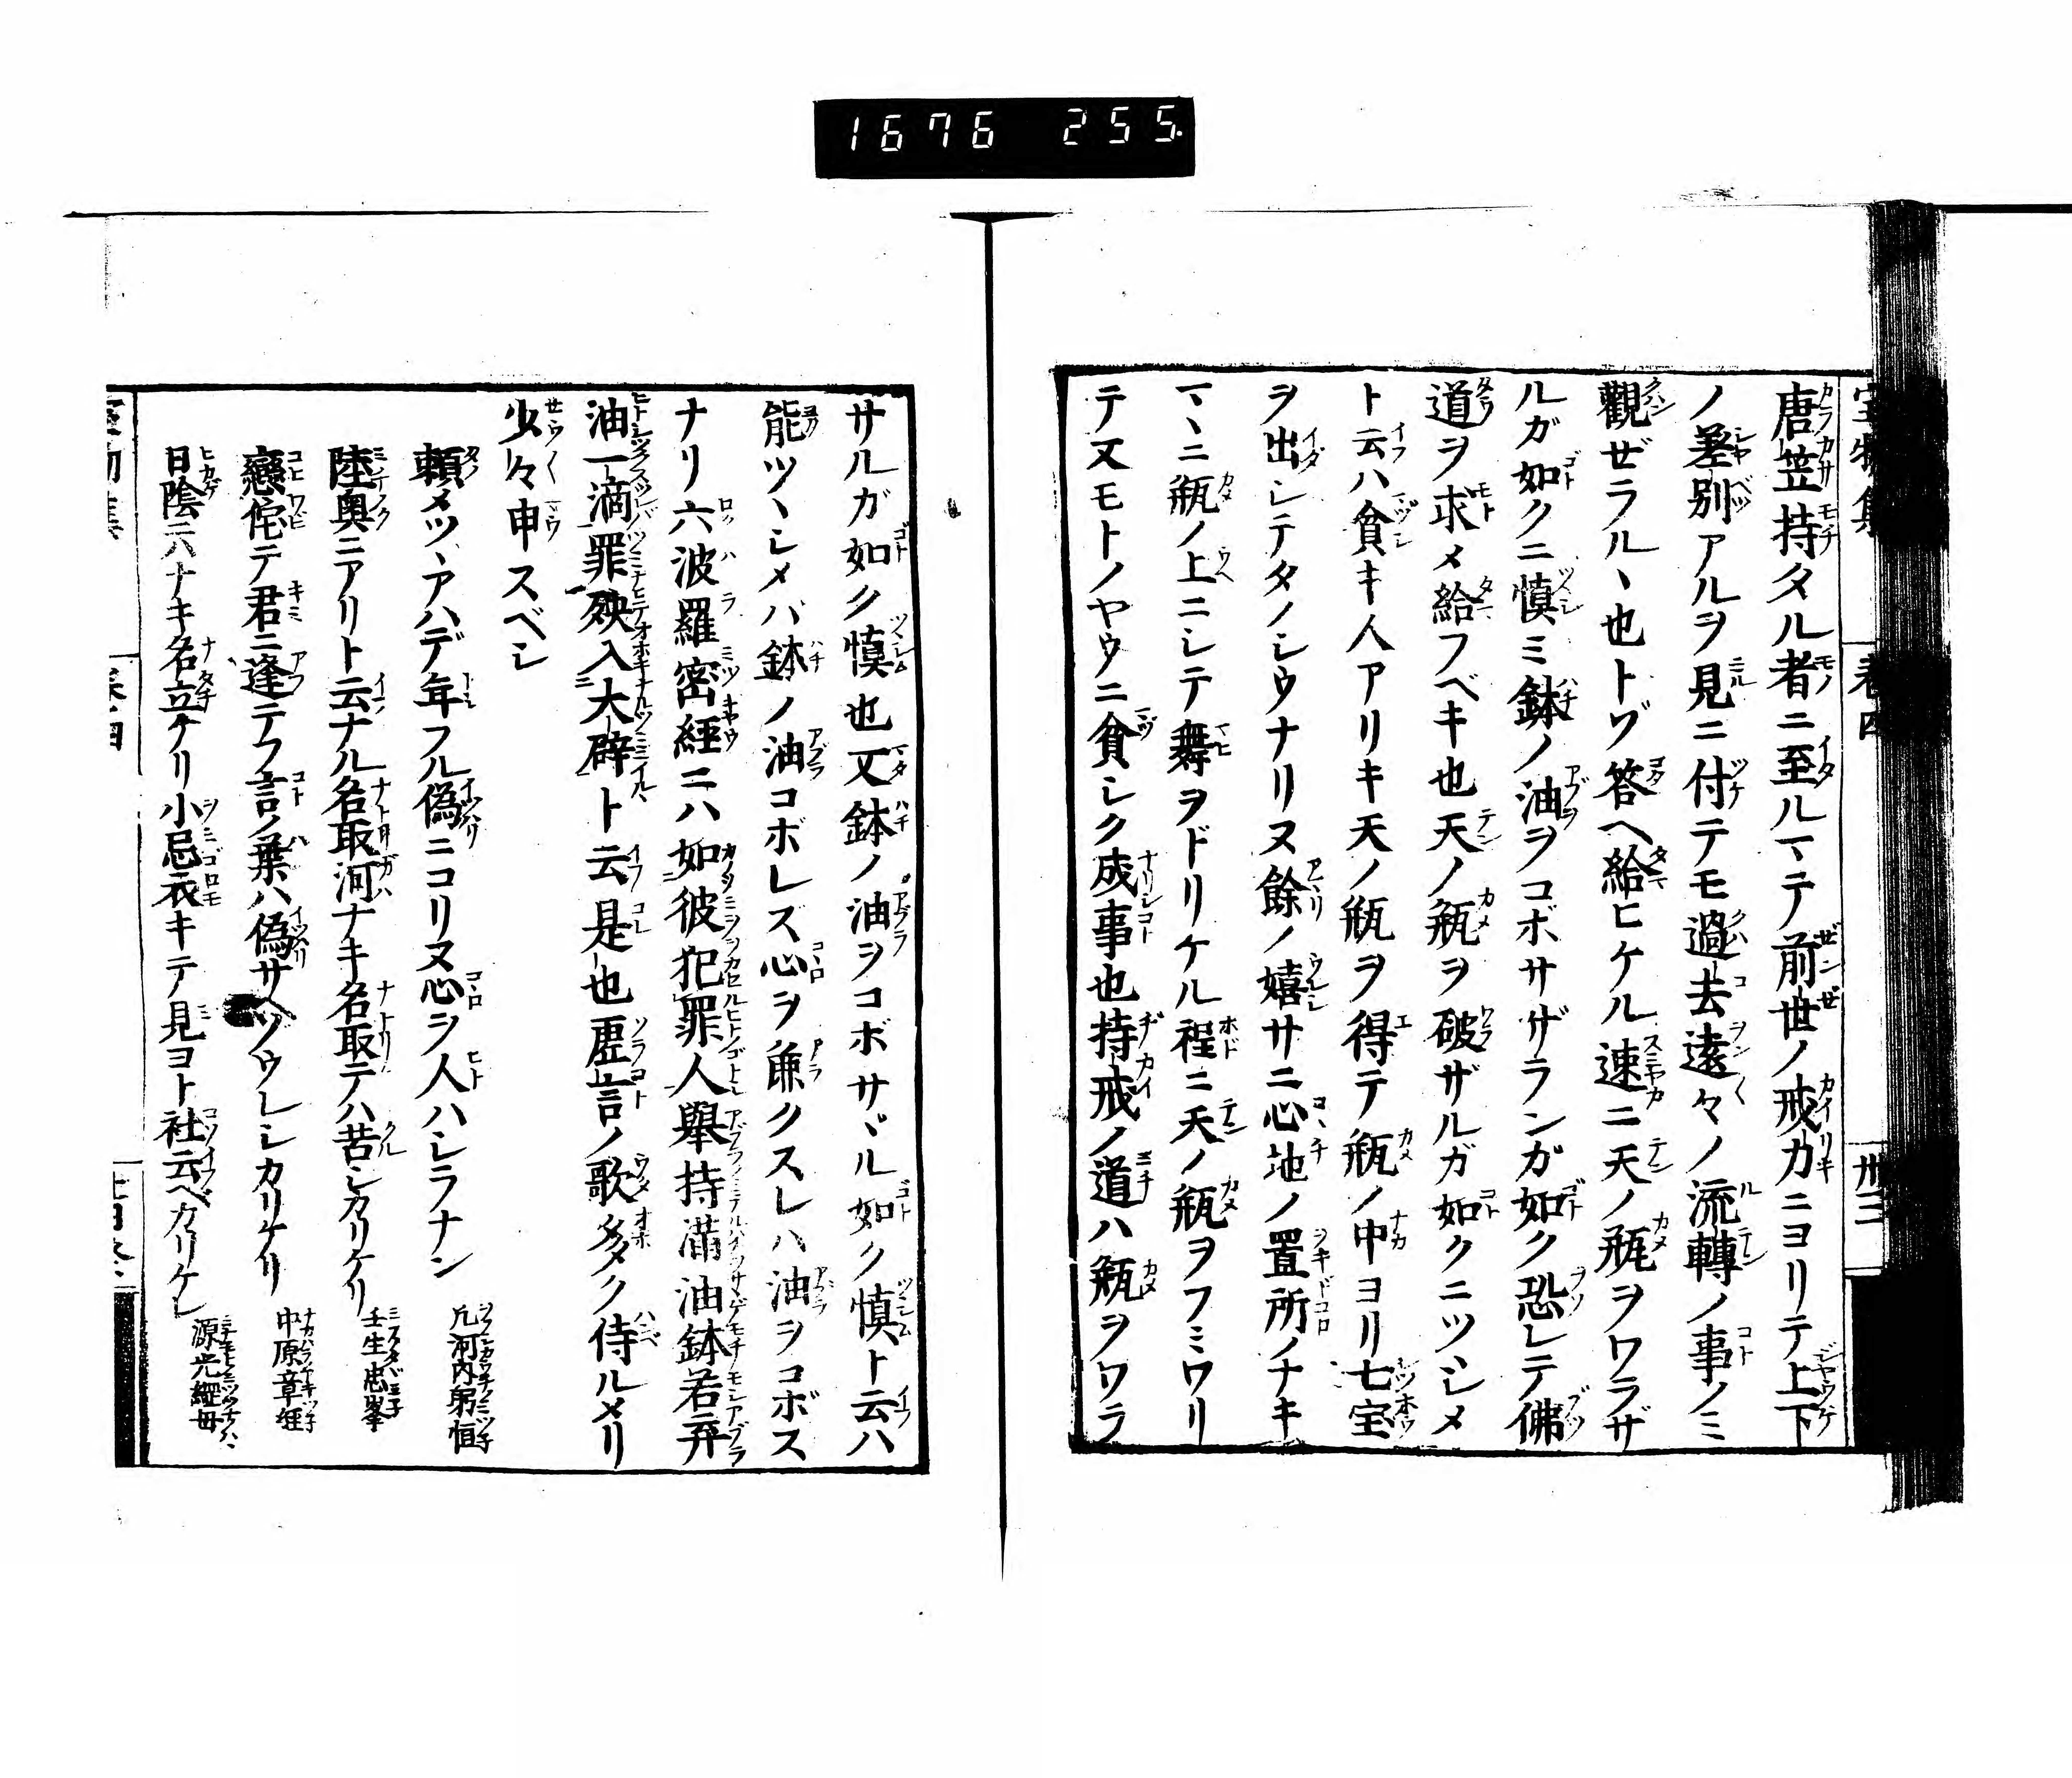 1676 255.
唐笠持タル者ニ至ルマヽテ前世ノ戒力ニヨリテ上下
ノ差別アルヲ見ニ付テモ過去遠々ノ流轉ノ事ノミ
觀ゼラルヽ也トゾ答ヘ給ヒケル速ニ天ノ瓶ヲワラザ
ルガ如クニ慎ミ鉢ノ油ヲコボサザランガ如ク恐レテ佛
道ヲ求メ給フベキ也天ノ瓶ヲ破ザルガ如クニツシメ
ト云ハ貧キ人アリキ天ノ瓶ヲ得テ瓶ノ中ヨリ七宝
ヲ出シテタノシウナリヌ餘ノ嬉サニ心地ノ置所ノナキ
マヽニ瓶ノ上ニシテ舞ヲドリケル程ニ天ノ瓶ヲフミワリ
テ又モトノヤウニ貧シク成事也持戒ノ道ハ瓶ヲワラ
サルガ如ク慎也又鉢ノ油ヲコボサヾル如ク慎ト云ハ
能ツヽシメバ鉢ノ油コボレズ心ヲ麁クスレハ油ヲコボス
ナリ六波羅密経ニハ如彼犯罪人擧持満油鉢若弃
油一滴罪殃入大辟ト云是也虚言ノ歌多ク侍ルメリ
少々申スベシ
頼メツヽアハデ年フル偽ニコリヌ心ヲ人ハシラナン 凡河内躬恒
陸奥ニアリト云ナル名取河ナキ名取テハ苦シカリケリ 壬生忠峯
戀侘テ君ニ逢テフ言ノ葉ハ偽サヘゾウレシカリケリ 中原章経
日陰ニハナキ名立ケリ小忌衣キテ見ヨト社云ベカリケレ 源光經母